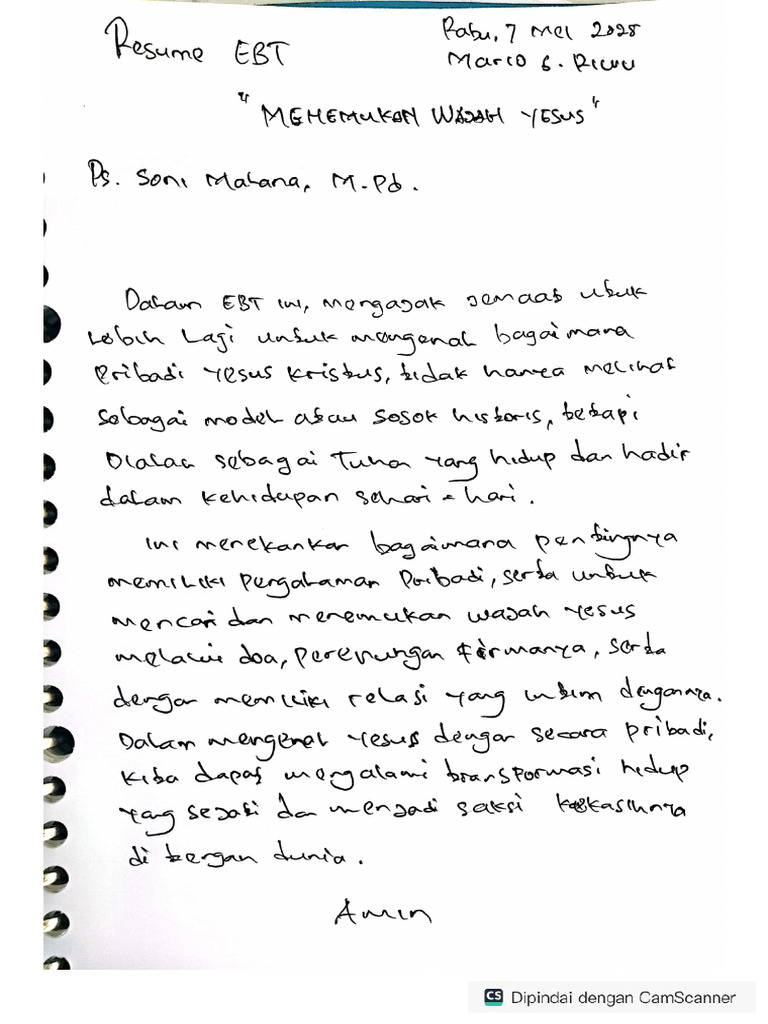 Resume EBT
Rabu, 7 Mei 2025
Mario G. Riwu
"MENEMUKAN WAJAH YESUS"
Ps. Soni Malana, M.Pd.
Dalam EBT ini, mengajak jemaat utuk
Lebih Lagi untuk mengenal bagaimana
Pribadi Yesus Kristus, tidak hanya melihat
sebagai model atau sosok historis, tetapi
Dialah sebagai Tuhan yang hidup dan hadir
dalam kehidupan sehari-hari.
Ini menekankan bagaimana pentingnya
memiliki pengalaman Pribadi, serta untuk
mencari dan menemukan wajah Yesus
melalui doa, perenungan firmanya, serta
dengan memiliki relasi yang intim dengannya.
Dalam mengenal Yesus dengan secara pribadi,
kita dapat mengalami transformasi hidup
yang sejati dan menjadi saksi kekasihnya
di tengan dunia.
Amin
CS Dipindai dengan CamScanner